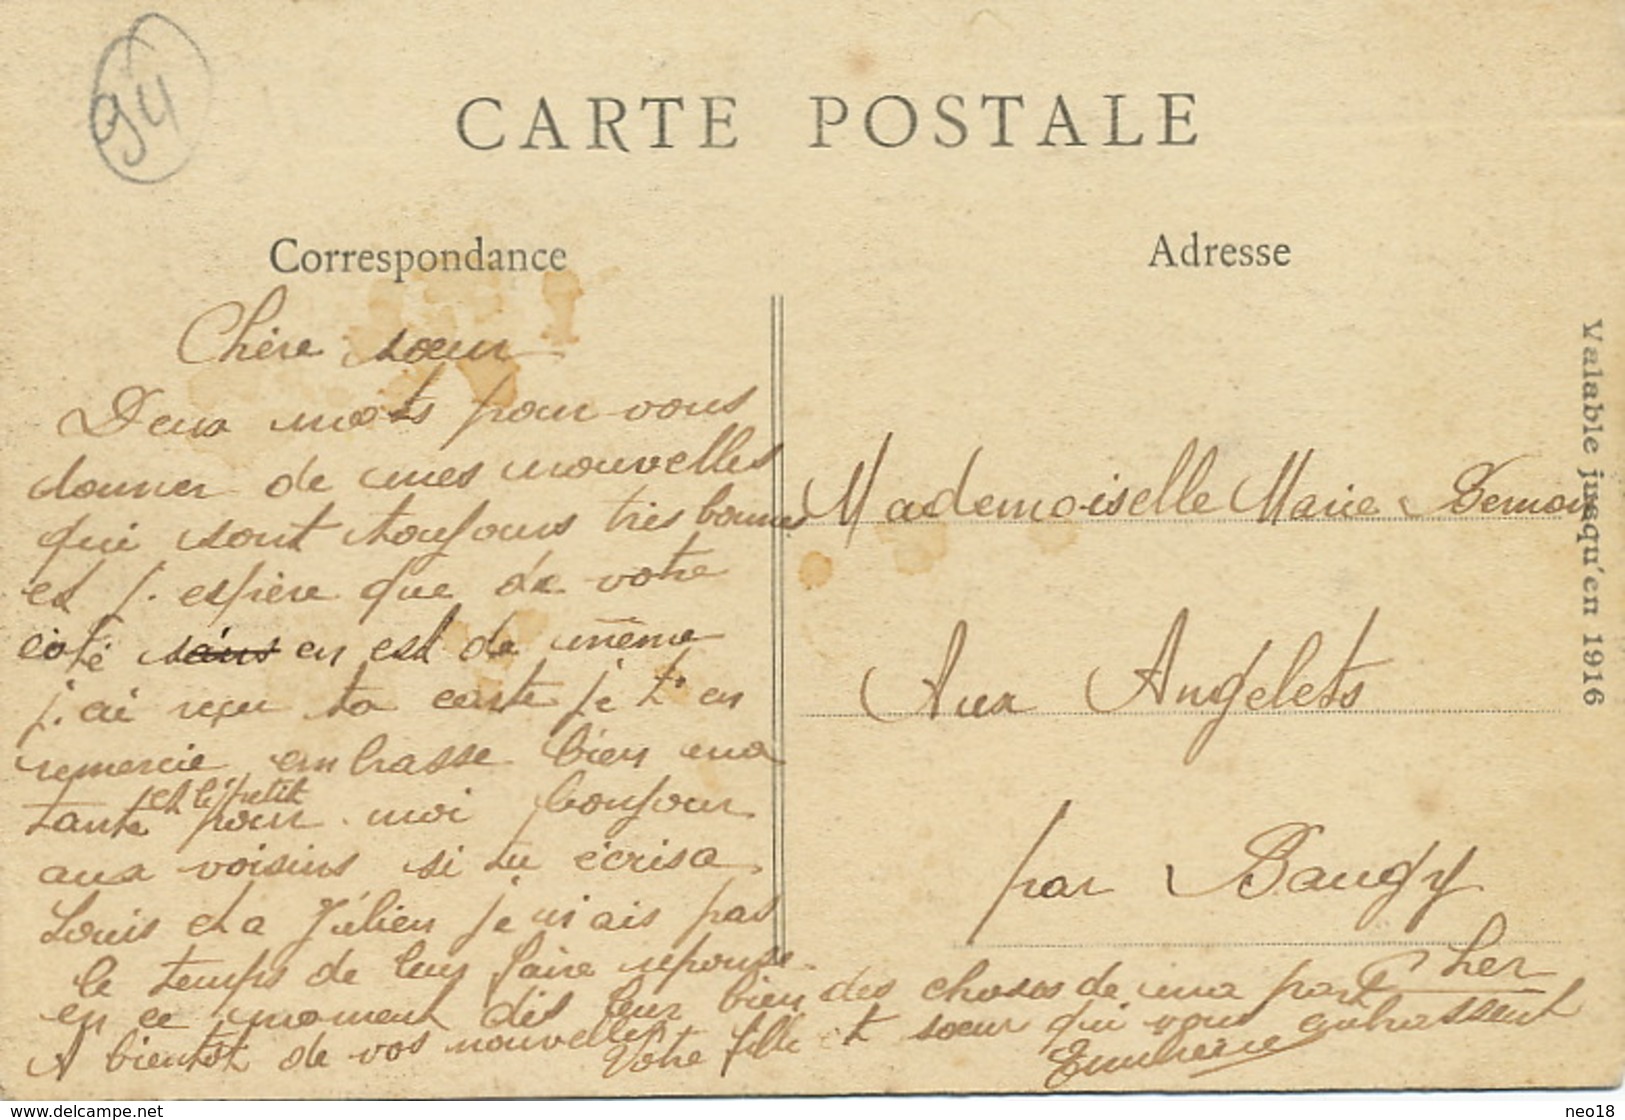 94
CARTE POSTALE
Correspondance
Adresse
Chère sœur
Deux mots pour vous
donner de mes nouvelles
qui sont toujours très bonnes
et j. espère que de votre
coté sans en est de même
j. ai reçu ta carte je t' en
remercie embrasse bien ma
et le petit
tante pour moi bonjour
aux voisins si tu écris a
Louis et a Julien je n'ais pas
le temps de leur faire réponse
en ce moment dis leur bien des choses de ma part
A bientôt de vos nouvelles
Votre fille et soeur qui vous embrassent
Mademoiselle Marie
Aux Angelets
par Baugy
Cher
Valable jusqu'en 1916
https://www.delcampe.net
neo18